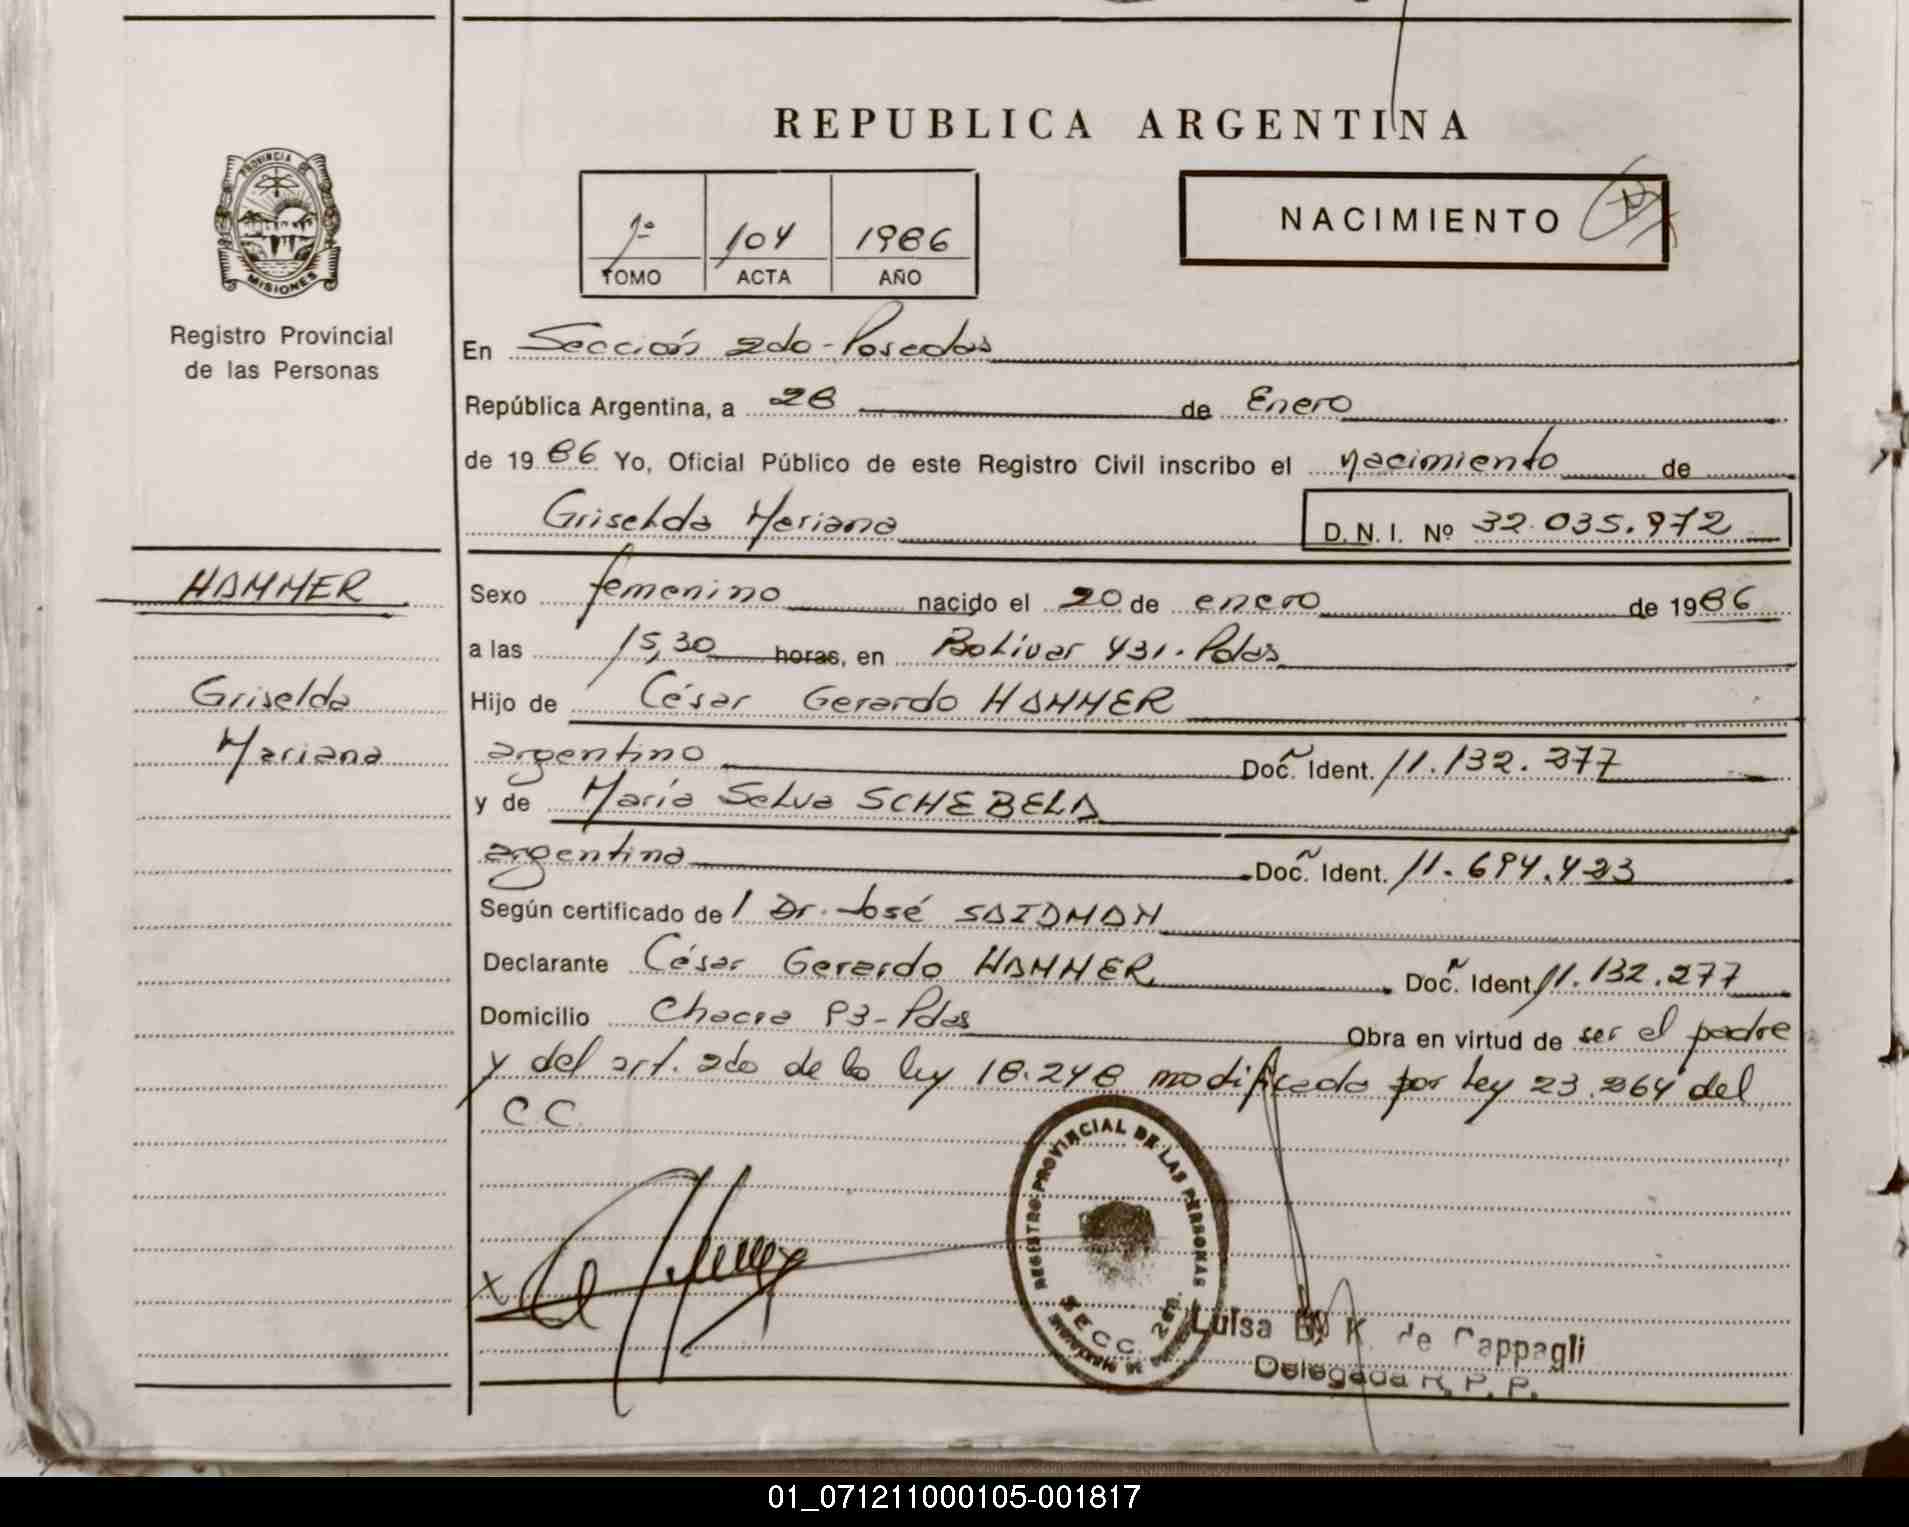 REPUBLICA ARGENTINA
PROVINCIA DE MISIONES
Registro Provincial
de las Personas
1º 104 1986
TOMO ACTA AÑO
NACIMIENTO
En Sección 2do - Posadas
República Argentina, a 28 de Enero
de 1986 Yo, Oficial Público de este Registro Civil inscribo el nacimiento de
Griselda Mariana D. N. I. Nº 32.035.972
HAMMER
Griselda
Mariana
Sexo femenino nacido el 20 de enero de 1986
a las 15,30 horas, en Bolivar 431 - Pdas
Hijo de César Gerardo HAMMER
argentino Doc. Ident. 11.132.277
y de María Selva SCHEBELA
argentina Doc. Ident. 11.694.423
Según certificado de / Dr. José SAIDMAN
Declarante César Gerardo HAMMER Doc. Ident. 11.132.277
Domicilio Chacra 93 - Pdas Obra en virtud de ser el padre
y del art. 2do de la ley 18.248 modificada por ley 23.264 del
C.C.
REGISTRO PROVINCIAL DE LAS PERSONAS
SECC. 2da.
Luisa K. de Cappagli
Delegada R. P. P.
01_071211000105-001817